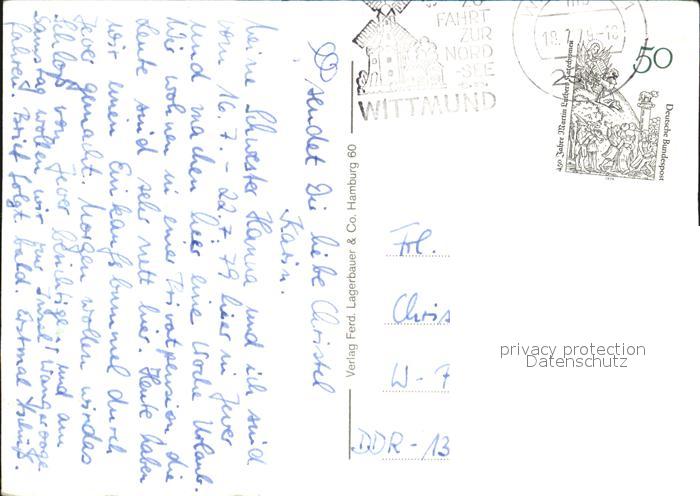 Meine Schwester Hanna und ich sind
vom 16.7. - 22.7.79 hier in Jever
und machen hier eine Woche Urlaub.
Wir wohnen in einer Privatpension die
Leute sind sehr nett hier. Heute haben
wir einen Einkaufsbummel durch
Jever gemacht. Morgen wollen wir das
Schloß von Jever besichtigen und am
Samstag wollen wir zur Insel Wangerooge
fahren. Brief folgt bald. Erstmal Tschüß.
sendet Dir liebe Christel
Karin.
Verlag Ferd. Lagerbauer & Co. Hamburg 60
FAHRT
ZUR
NORD
-SEE
WITTMUND
18.7.79-18
2
50
Deutsche Bundespost
450 Jahre Martin Luthers Katechismen
Frl.
Chris
W-
DDR-13
privacy protection
Datenschutz